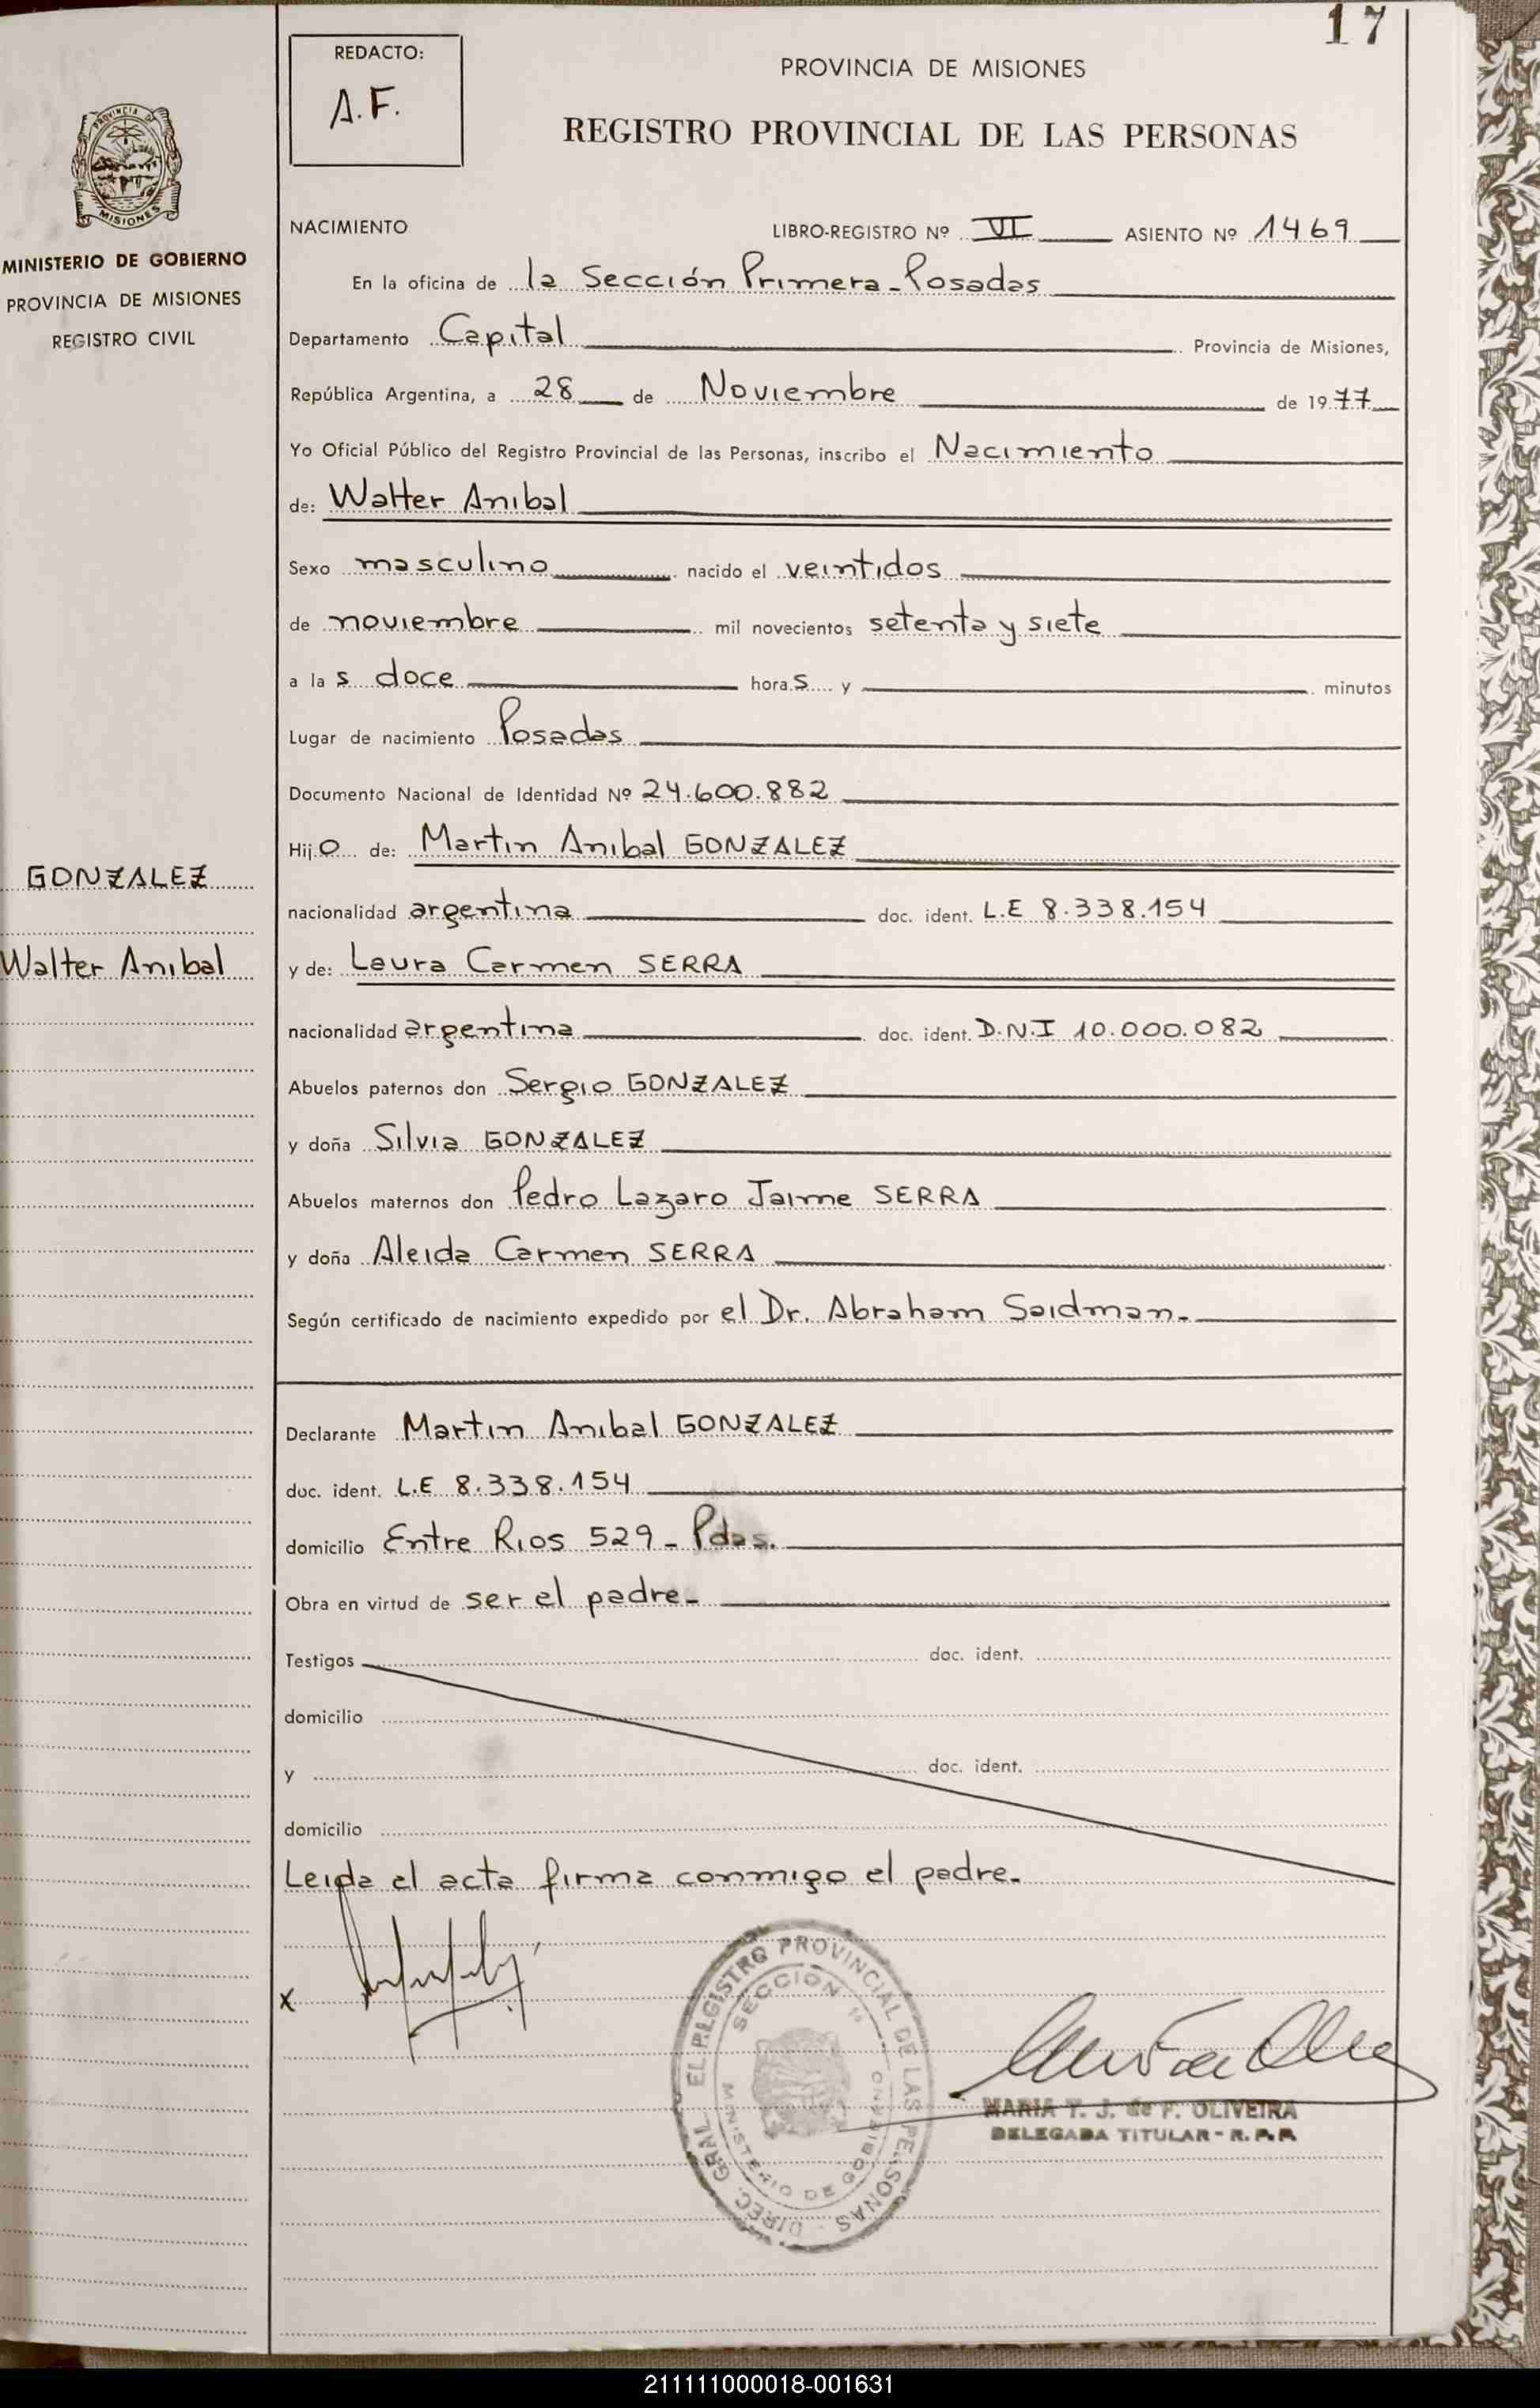 17
REDACTO:
A.F.
PROVINCIA DE MISIONES
REGISTRO PROVINCIAL DE LAS PERSONAS
PROVINCIA DE
MISIONES
MINISTERIO DE GOBIERNO
PROVINCIA DE MISIONES
REGISTRO CIVIL
NACIMIENTO LIBRO-REGISTRO Nº VI ASIENTO Nº 1469
En la oficina de la Sección Primera - Posadas
Departamento Capital Provincia de Misiones,
República Argentina, a 28 de Noviembre de 1977
Yo Oficial Público del Registro Provincial de las Personas, inscribo el Nacimiento
de: Walter Anibal
Sexo masculino nacido el veintidos
de noviembre mil novecientos setenta y siete
a la s doce hora s y minutos
Lugar de nacimiento Posadas
Documento Nacional de Identidad Nº 24.600.882
Hij o de: Martin Anibal GONZALEZ
GONZALEZ
nacionalidad argentina doc. ident. L.E 8.338.154
Walter Anibal
y de: Laura Carmen SERRA
nacionalidad argentina doc. ident. D.N.I 10.000.082
Abuelos paternos don Sergio GONZALEZ
y doña Silvia GONZALEZ
Abuelos maternos don Pedro Lazaro Jaime SERRA
y doña Aleida Carmen SERRA
Según certificado de nacimiento expedido por el Dr. Abraham Saidman.-
Declarante Martin Anibal GONZALEZ
doc. ident. L.E 8.338.154
domicilio Entre Rios 529 - Pdas.
Obra en virtud de ser el padre.-
Testigos doc. ident.
domicilio
y doc. ident.
domicilio
Leida el acta firma conmigo el padre.-
x
DIREC. GRAL. EL REGISTRO PROVINCIAL DE LAS PERSONAS
SECCION 1ª
MINISTERIO DE GOBIERNO
MARIA T. J. de F. OLIVEIRA
DELEGADA TITULAR - R. P. P.
211111000018-001631